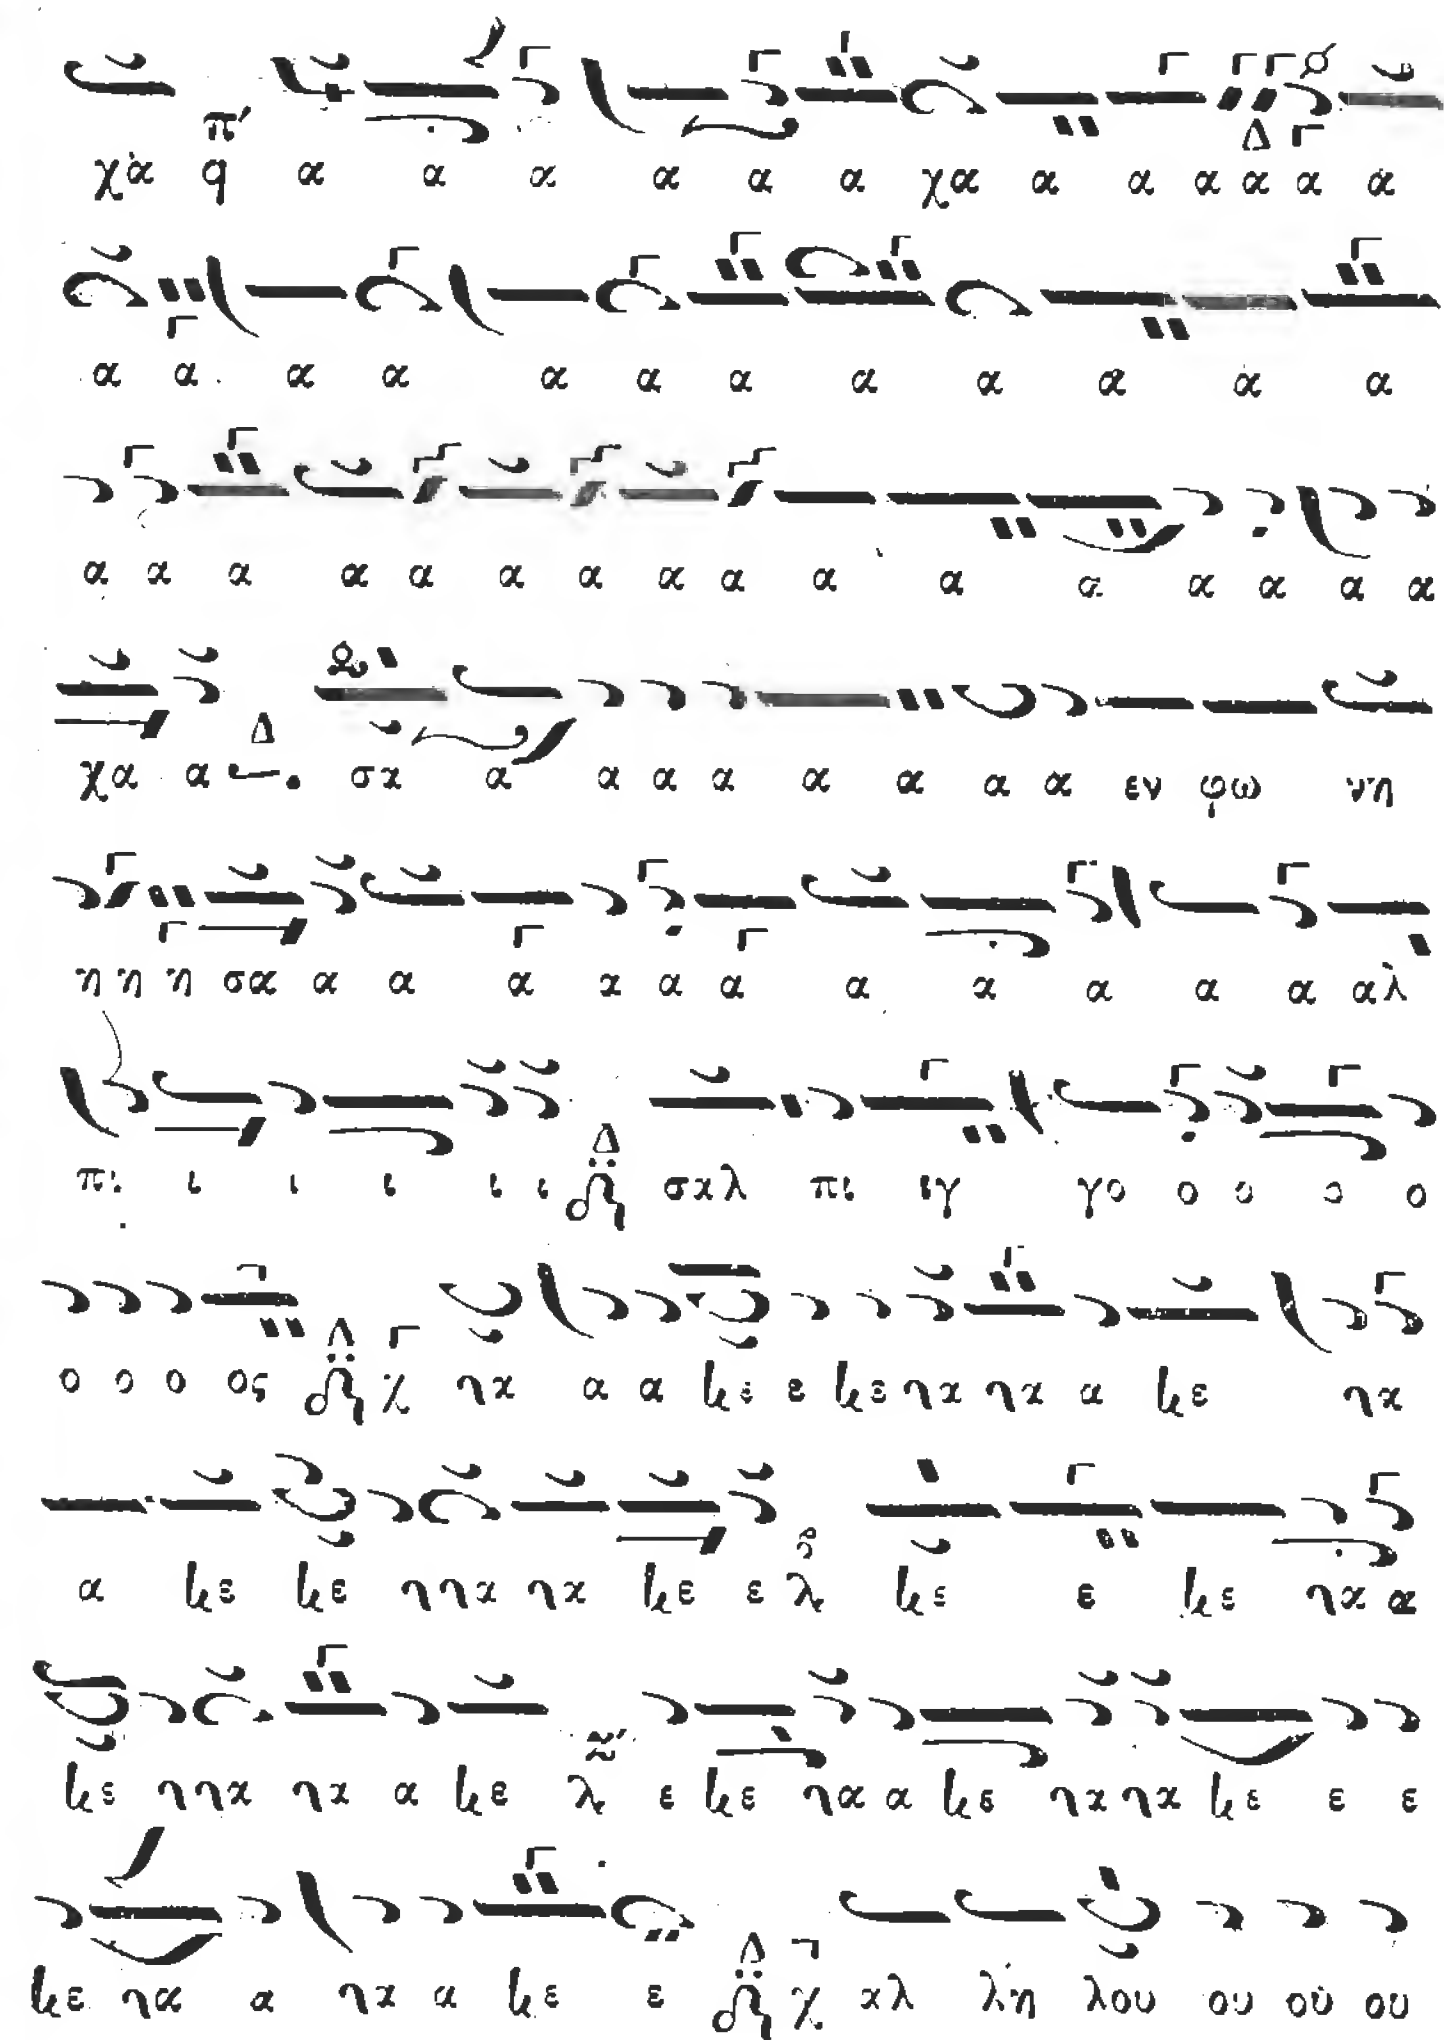 χα π' q α α α α α α χα α α α α α α
α α α α α α α α α α α α
α α α α α α α α α α α α α α α α
χα α Δ σα α α α α α α α α εν φω νη
η η η σα α α α α α α α α α α α αλ
πι ι ι ι ι ι Δ σαλ πι ιγ γο ο ο ο ο
ο ο ο ος Δ χ να α α νε ε νε να να α νε να
α νε νε ννα να νε ε λ νε ε νε να α
νε ννα να α νε λ ε νε να α νε να να νε ε ε
νε να α να α νε ε Δ χ αλ λη λου ου ου ου